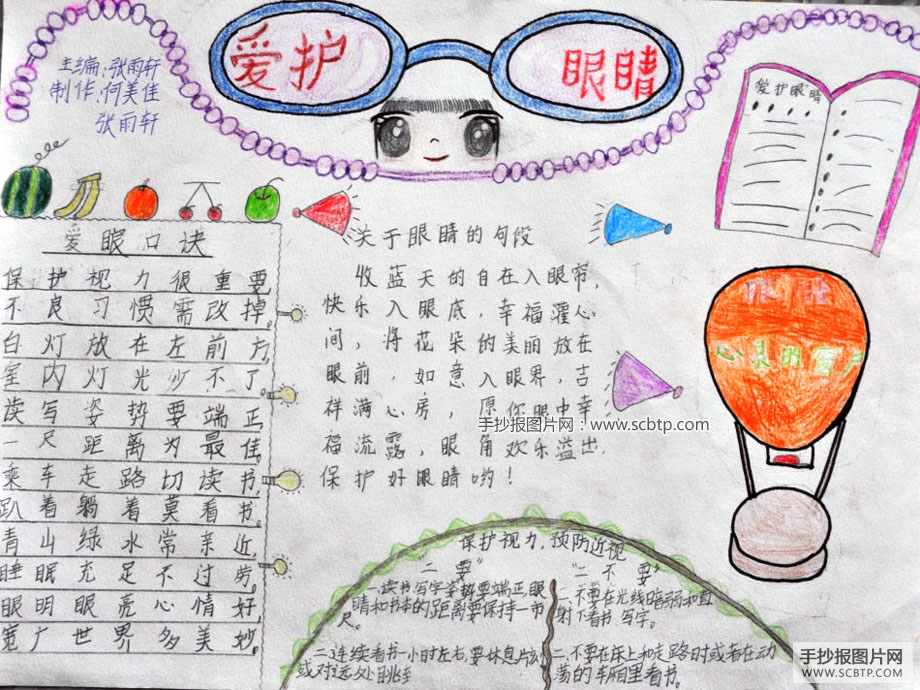 爱护 眼睛
主编:张雨轩
制作:何美佳
张雨轩
爱护眼睛
爱眼口诀
保护视力很重要
不良习惯需改掉。
台灯放在左前方
室内灯光少不了。
读写姿势要端正
一尺距离为最佳
乘车走路切读书,
趴着躺着莫看书。
青山绿水常亲近,
睡眠充足不过劳。
眼明眼亮心情好
宽广世界多美妙。
关于眼睛的句段
收蓝天的自在入眼帘,
快乐入眼底,幸福灌心
间,将花朵的美丽放在
眼前,如意入眼界,吉
祥满心房,愿你眼中幸
福流露,眼角欢乐溢出,
保护好眼睛哟!
手抄报图片网:www.scbtp.com
心灵的窗户
保护视力,预防近视
二要"
一.读书写字姿势要端正,眼
睛和书本的距离要保持一市
尺。
二.连续看书一小时左右,要休息片刻
或对远处眺
"二不要"
一.不要在光线暗弱和直
射下看书、写字。
二.不要在床上和走路时或者在动
荡的车厢里看书。
手抄报图片网
WWW.SCBTP.COM